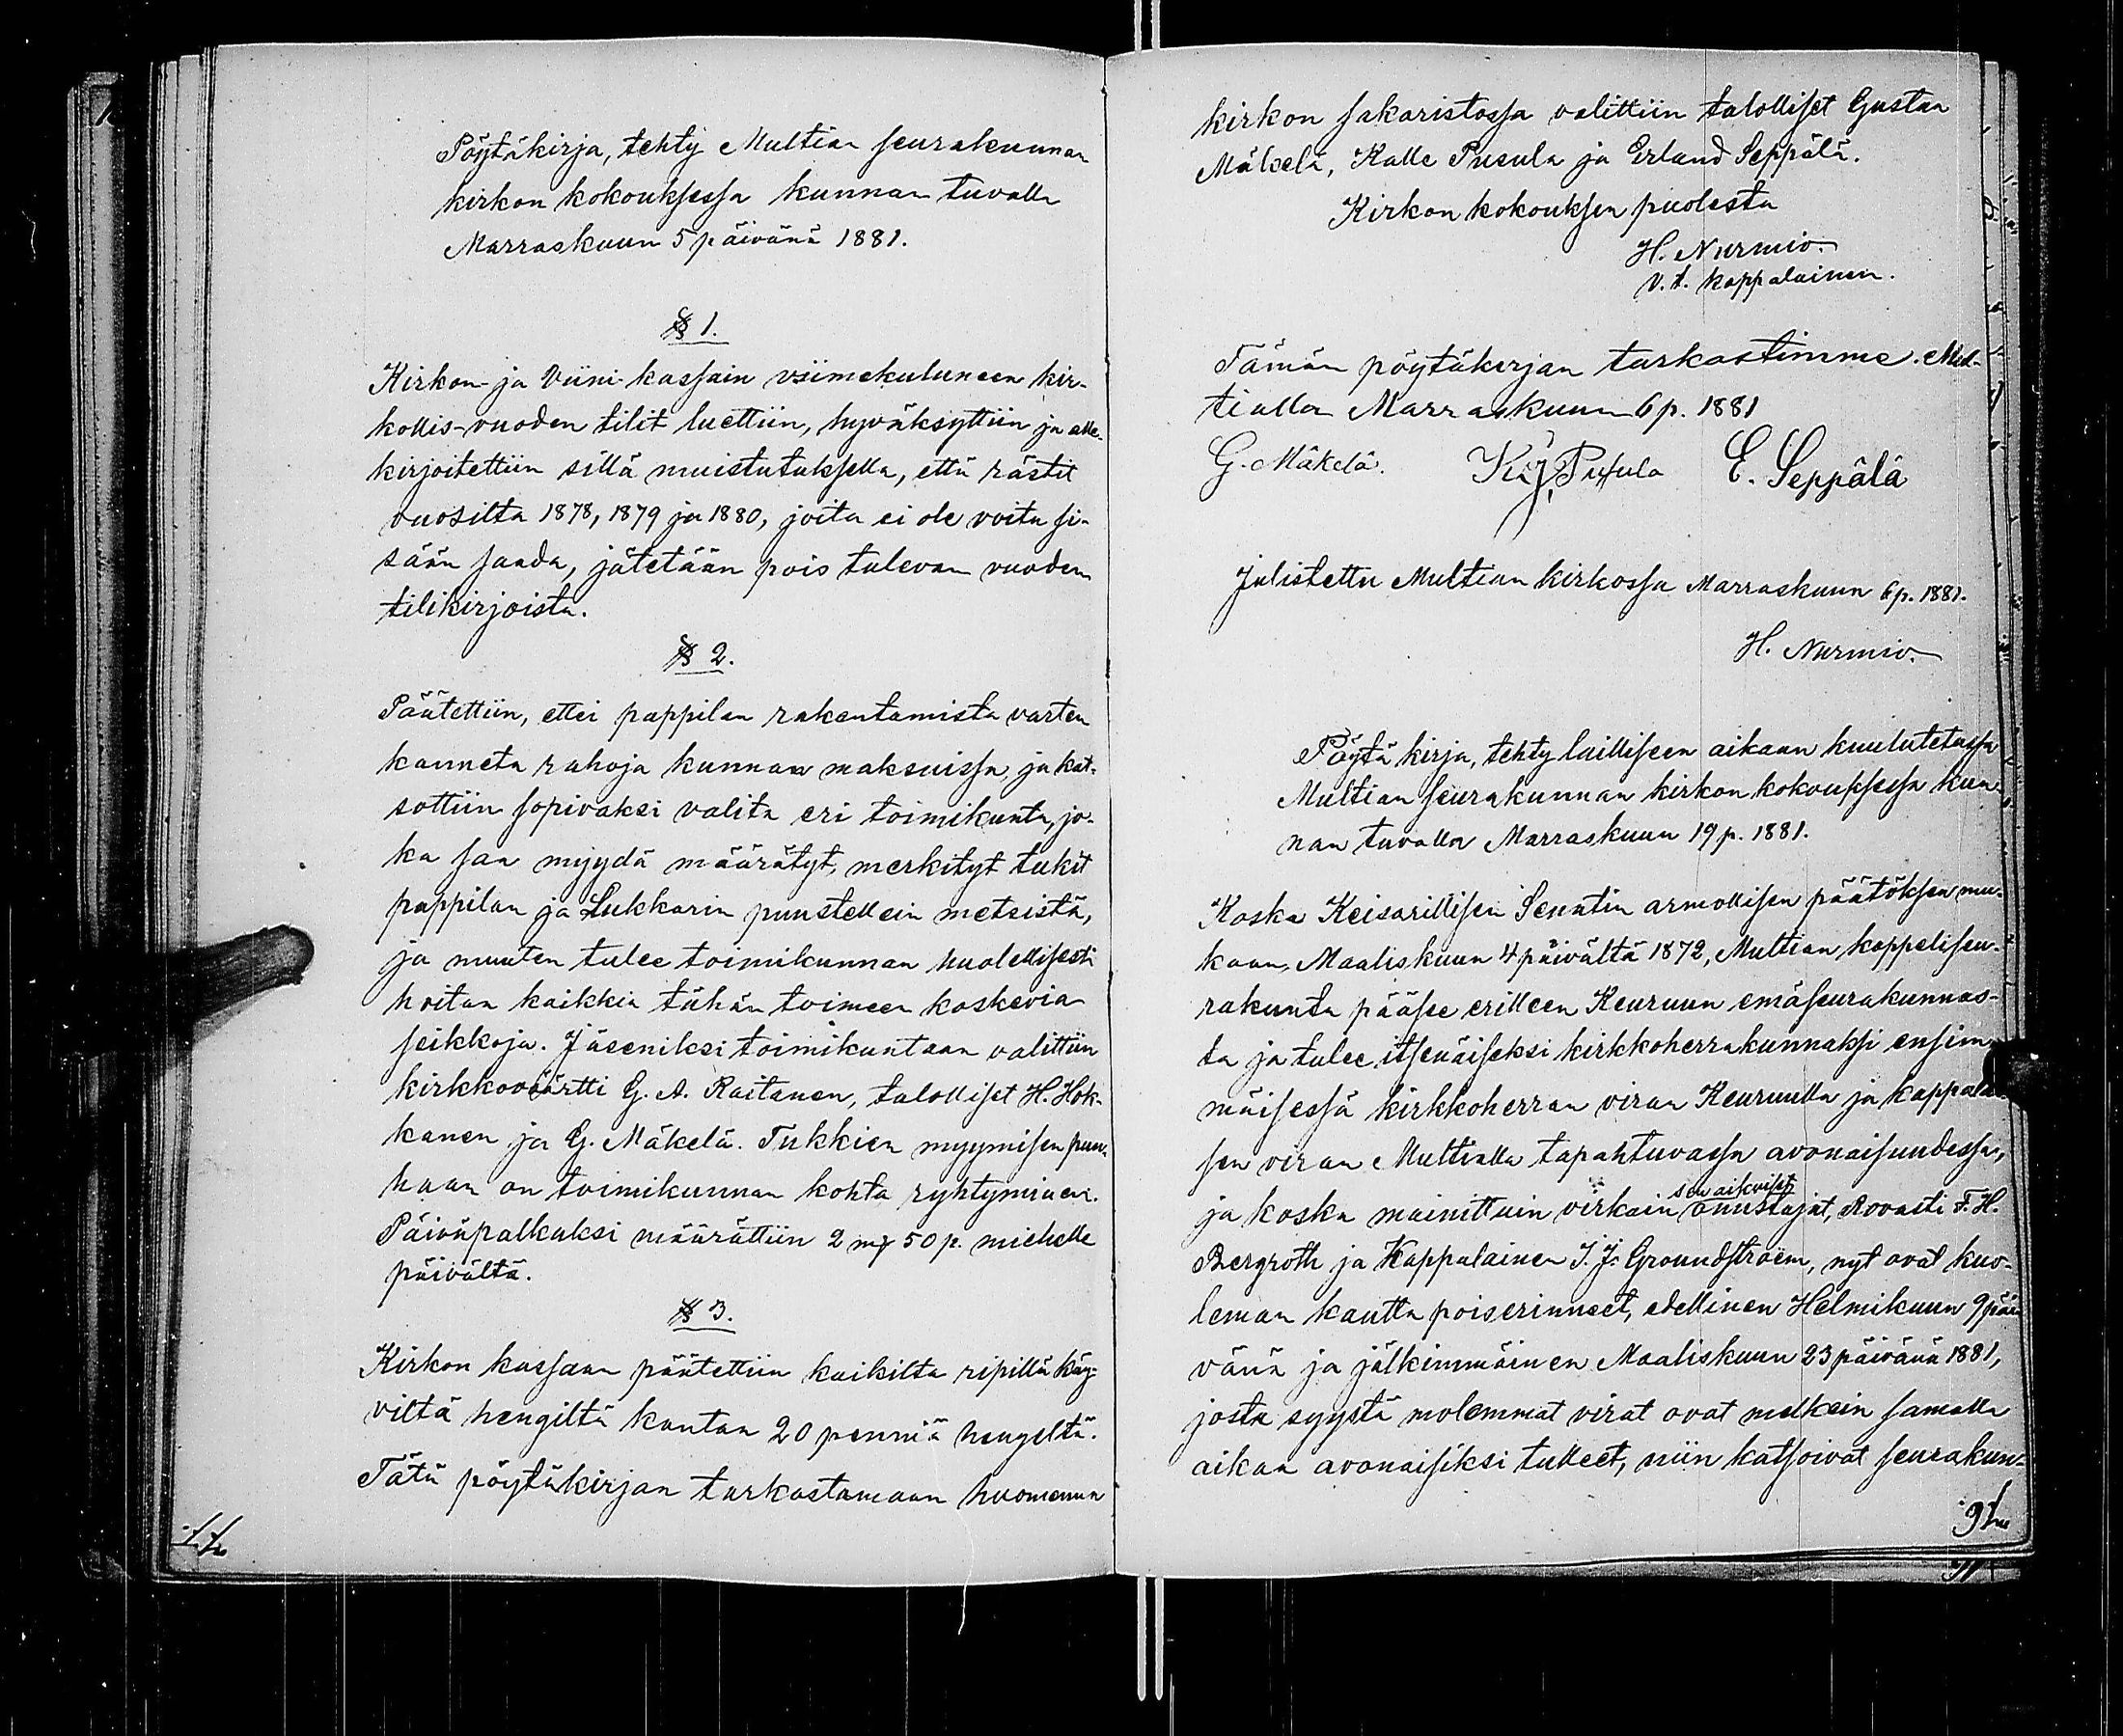 Pöytäkirja, tehty Multian seurakunnan
kirkon kokouksessa kunnan tuvalla
Marraskuun 5 päivänä 1881.
§ 1.
Kirkon- ja Viini-kassain viimekuluneen kir-
kollis-vuoden tilit luettiin, hyväksyttiin ja alle-
kirjoitettiin sillä muistutuksella, että rästit
vuosilta 1878, 1879 ja 1880, joita ei ole voitu si-
sään saada, jätetään pois tulevan vuoden
tilikirjoista.
§ 2.
Päätettiin, ettei pappilan rakentamista varten
kanneta rahoja kunnan maksuissa, ja kat-
sottiin sopivaksi valita eri toimikunta, jo-
ka saa myydä määrätyt, merkityt tukit
pappilan ja Lukkarin puustellein metsistä,
ja muuten tulee toimikunnan huolellisesti
hoitaa kaikkia tähän toimeen koskevia
seikkoja. Jäseniksi toimikuntaan valittiin
kirkkoväärtti G. A. Raitanen, talolliset H. Hok-
kanen ja G. Mäkelä. Tukkien myymisen puu-
haan on toimikunnan kohta ryhtyminen.
Päiväpalkaksi määrättiin 2 mf 50 p. miehelle
päivältä.
§ 3.
Kirkon kassaan päätettiin kaikilta ripillä käy-
viltä hengiltä kantaa 20 penniä hengeltä.
Tätä pöytäkirjan tarkastamaan huomenna
kirkon sakaristossa valittiin talolliset Gustaa
Mäkelä, Kalle Pusula ja Erland Seppälä.
Kirkon kokouksen puolesta
H. Nurmio.
V. t. kappalainen.
Tämän pöytäkirjan tarkastimme. Mul-
tialla Marraskuun 6 p. 1881
G. Mäkelä. K. J. Pusula E. Seppälä
Julistettu Multian kirkossa Marraskuun 6 p. 1881.
H. Nurmio.
Pöytäkirja, tehty lailliseen aikaan kuulutetussa
Multian seurakunnan kirkon kokouksessa kun-
nan tuvalla Marraskuun 19 p. 1881.
Koska Keisarillisen Senatin armollisen päätöksen mu-
kaan, Maaliskuun 4 päivältä 1872, Multian kappeliseu-
rakunta pääsee erilleen Keuruun emäseurakunnas-
ta ja tulee itsenäiseksi kirkkoherrakunnaksi ensim-
mäisessä kirkkoherran viran Keuruulla ja kappalai-
sen viran Multialla tapahtuvassa avonaisuudessa,
sen aikuiset
ja koska mainittuin virkain omistajat, Rovasti F. H.
Bergroth ja Kappalainen J. J. Groundstroëm, nyt ovat kuo-
leman kautta poiserinneet, edellinen Helmikuun 9 päi-
vänä ja jälkimmäinen Maaliskuun 23 päivänä 1881,
josta syystä molemmat virat ovat melkein samalla
aikaa avonaisiksi tulleet, niin katsoivat seurakun-
91.